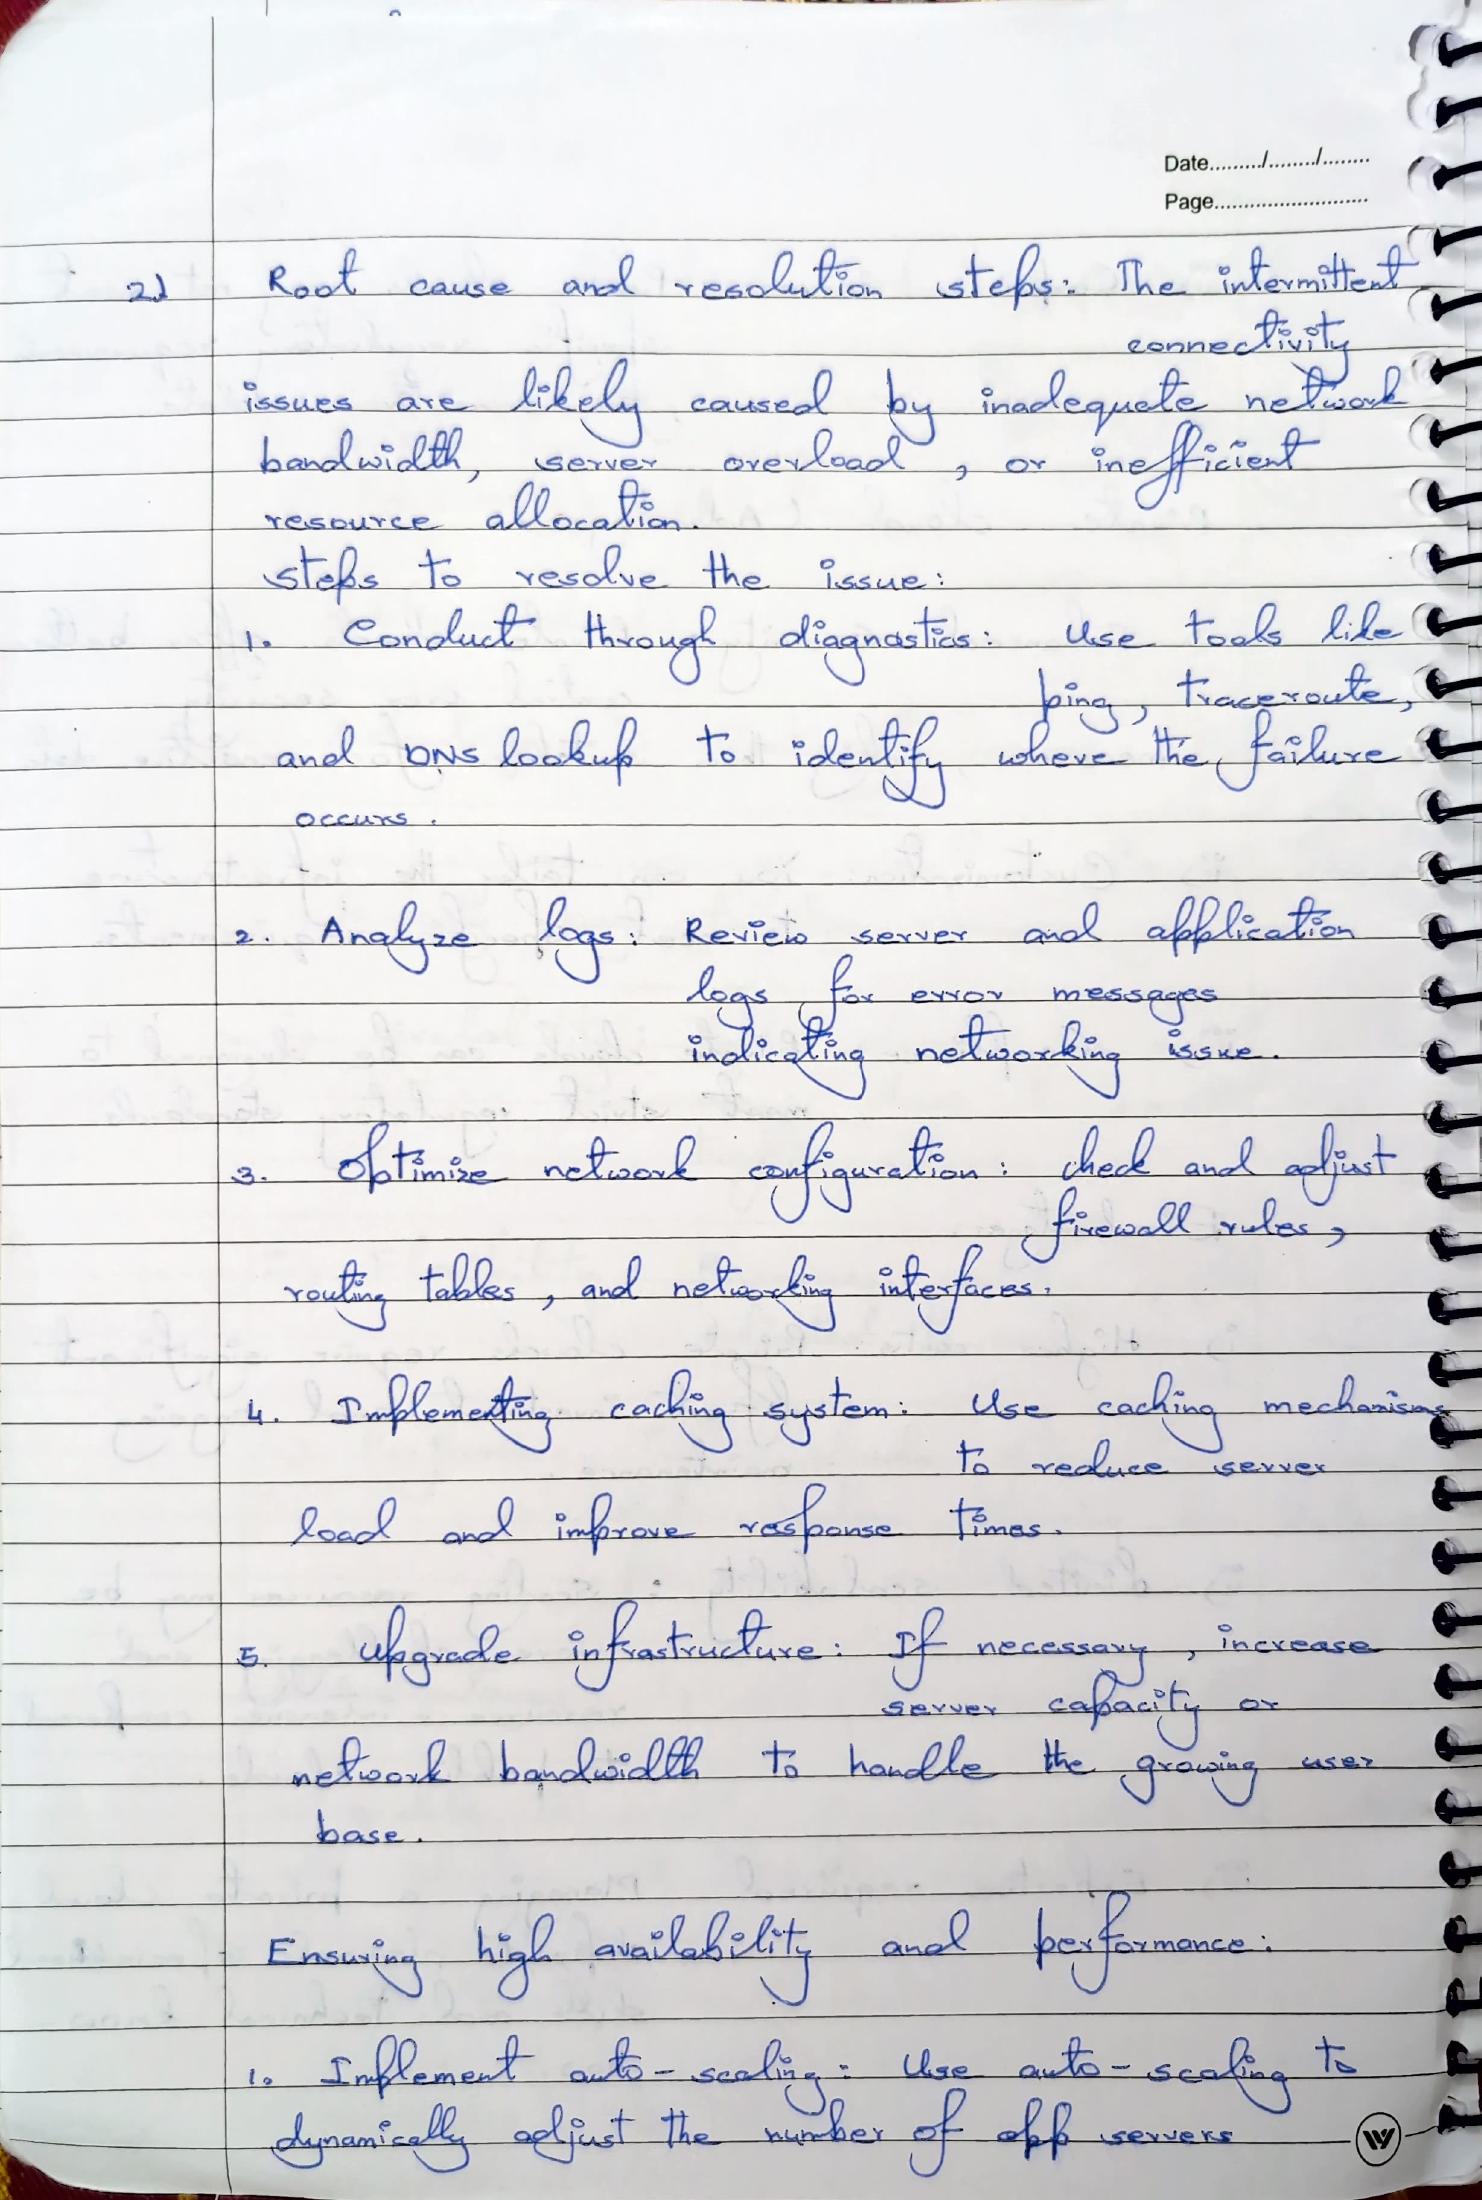 Date........./......../........
Page...........................
2) Root cause and resolution steps: The intermittent
connectivity
issues are likely caused by inadequate network
bandwidth, server overload, or inefficient
resource allocation.
steps to resolve the issue:
1. Conduct through diagnostics: Use tools like
ping, traceroute,
and DNS lookup to identify where the failure
occurs.
2. Analyze logs: Review server and application
logs for error messages
indicating networking issue.
3. Optimize network configuration: check and adjust
firewall rules,
routing tables, and networking interfaces.
4. Implementing caching system: Use caching mechanisms
to reduce server
load and improve response times.
5. Upgrade infrastructure: If necessary, increase
server capacity or
network bandwidth to handle the growing user
base.
Ensuring high availability and performance:
1. Implement auto-scaling: Use auto-scaling to
dynamically adjust the number of app servers
W